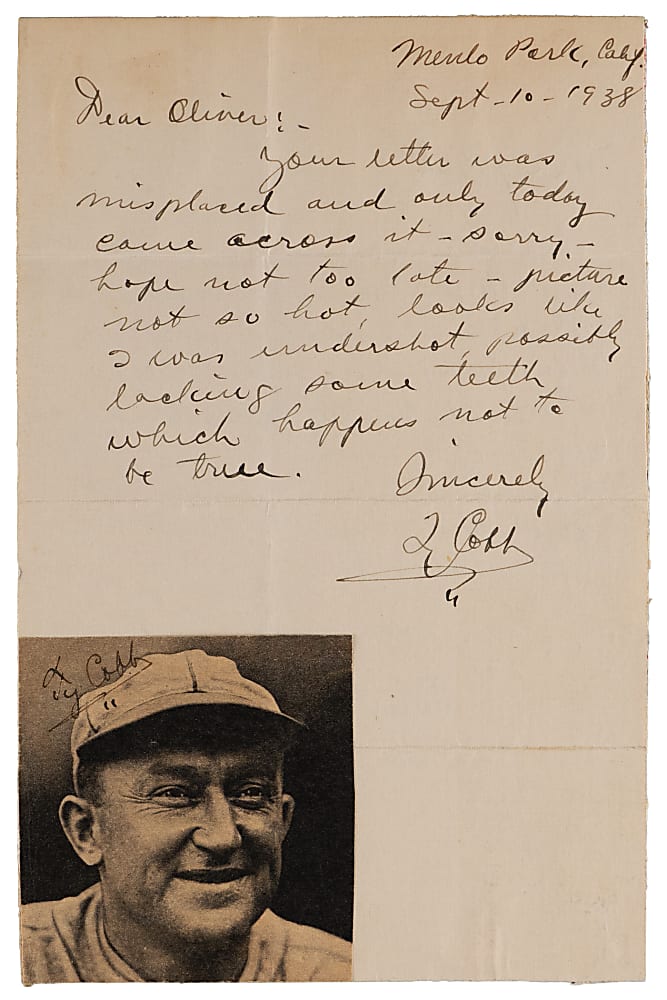 Menlo Park, Calif.
Sept-10-1938
Dear Oliver:-
Your letter was
misplaced and only today
came across it - sorry -
hope not too late - picture
not so hot, looks like
I was undershot, possibly
lacking some teeth
which happens not to
be true.
Sincerely
Ty Cobb
"
Ty Cobb
"